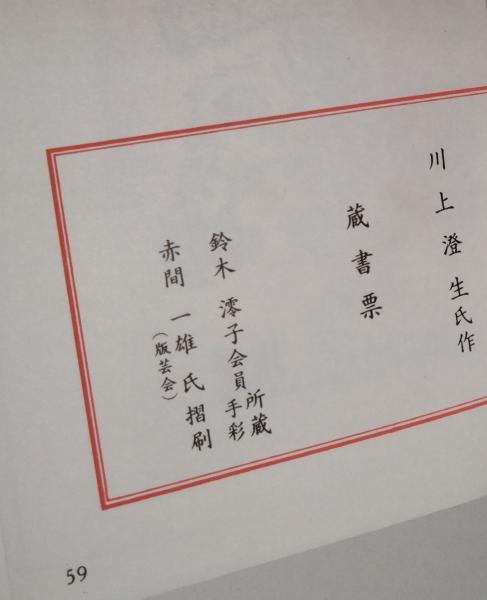 川上澄生氏作
蔵書票
鈴木澪子会員所蔵
手彩
赤間一雄氏摺刷
(版芸会)
59